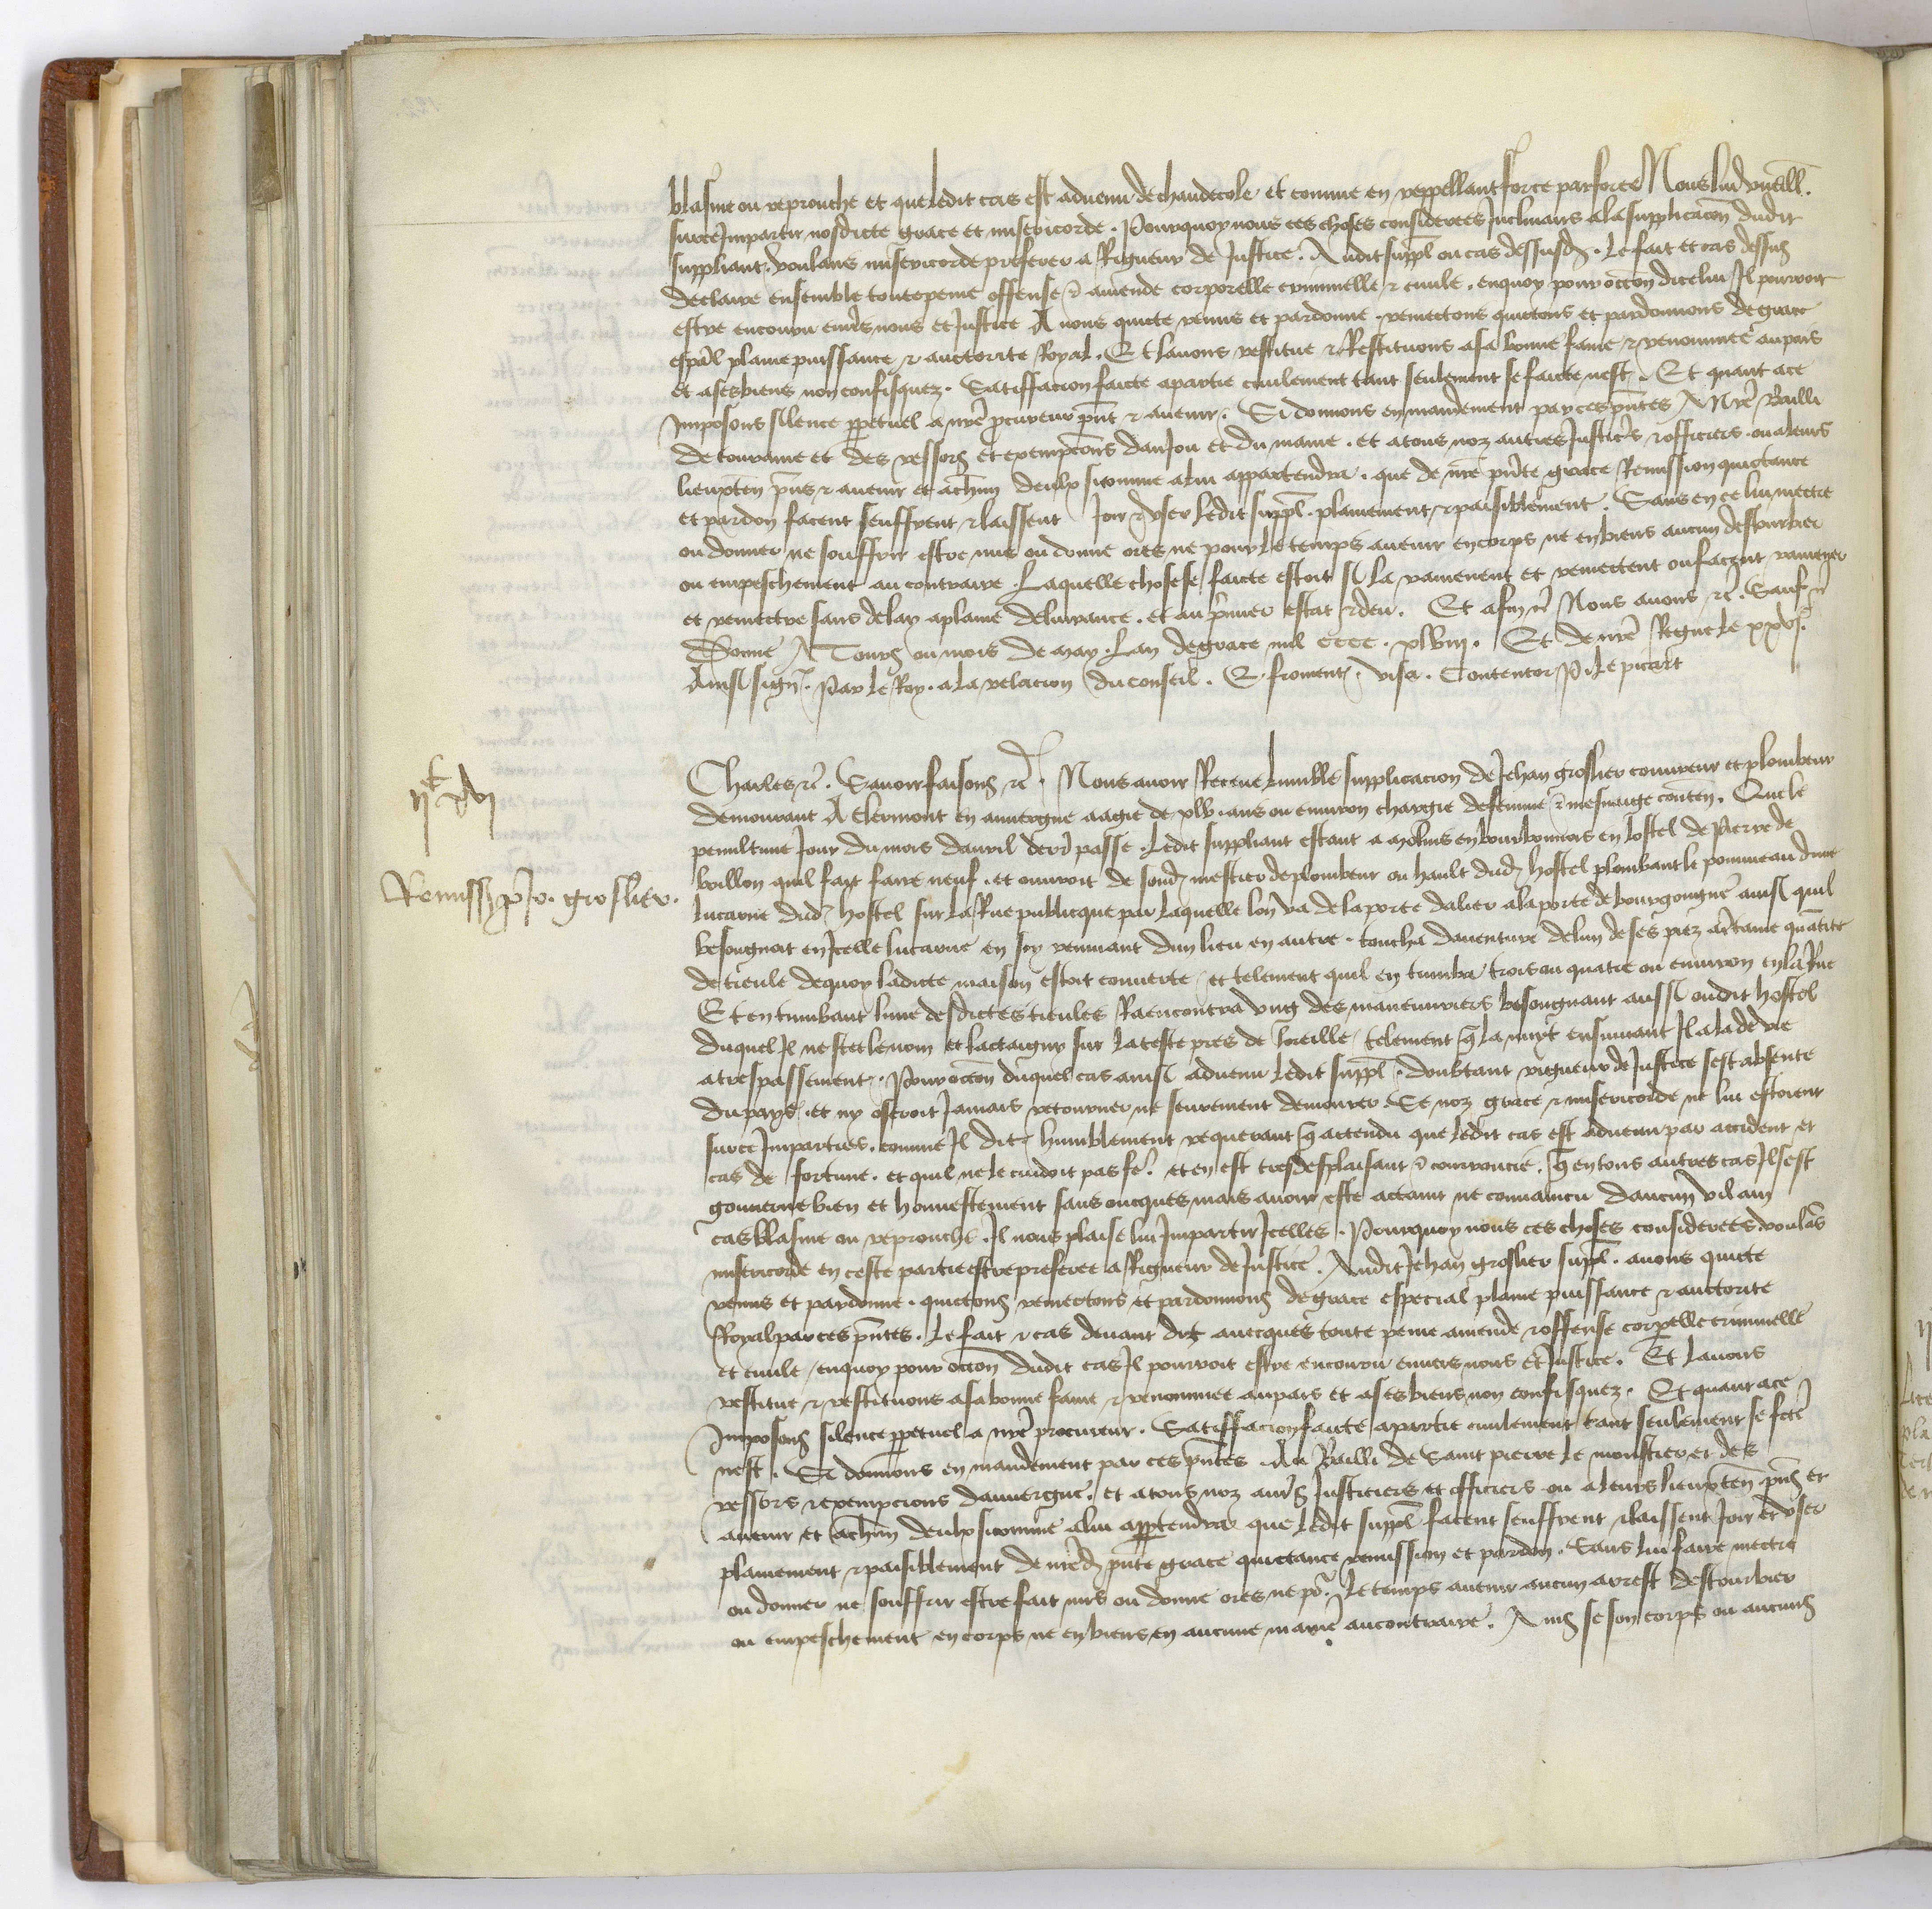 blasme ou reprouche et que ledit cas est advenu de chaudecole et comme en reppellant force par force Nous lui vueill.
surce Impartir nosdicte grace et misericorde. Pourquoy nous ces choses considerees Inclinans ala supplicacõn dudit
suppliant. voulans misericorde preferer a Rigueur de Justice. Audit suppl̃ ou cas dessusd. Le fait et cas dessus
declaire ensemble toute peine offense & amende corporelle criminelle & civile. enquoy pour occõn dicelui Il pourroit
estre encouru envs nous et Justice A nous quicte remis et pardonne. remectons quictons et pardonnons de grace
esp̃al plaine puissance & auctorite Royal. Et lavons restitue & Restituons asa bonne fame & renommee aupais
et asesbiens non confisquez. Satiffacion faicte apartie civilement tant seulement se faicte nest. Et quant ace
Imposons silence ppetuel a nr̃e pcureur p̃nt & avenir. Si donnons en mandement par ces p̃ntes A Nr̃e Bailli
de touraine et des ressors et exempcõns danJou et du maine. et atous noz autres Justic̃rs & officiers. ou aleurs
lieuxten̄ p̃ns & avenir et achũn deulx sicomme alui appartendra. que de nr̃e p̃nte grace Remission quictance
et pardon facent seuffrent & laissent Joir & user ledit suppl̃. plainement & paisiblement. Sans en ce lui mectre
ou donner ne souffrir estre mis ou donne ores ne pour le temps avenir en corps ne en biens aucun destourbier
ou empeschement au contraire. Laquelle chose se faicte estoit si la ramenent et remectent ou facent ramener
et remectre sans delay aplaine delivrance. et au p̃mier estat & deu. Et afin &c̃ Nous avons &c̃. Sauf &c̃
Donne A Tours ou mois de may. Lan de grace mil cccc. xlviij. Et de nr̃e Regne le xxvj.
Ainsi signe. Par le Roy. ala relacion du conseil. E. froment. visa. Contentor P. le picart
ijᶜ xvj
Charles &c̃. Savoir faisons &c̃. Nous avoir Receue lumble supplicacion de Jehan groslier couvreur et plombeur
demourant A Clermont en auvergne aagie de xlvj ans ou environ chargie de femme & mesnaige conten̄. Que le
penultime Jour du mois davril derr̃ passe. Ledit suppliant estant a molins en bourbonnois en lostel de Pierre de
Remissio p Jo. groslier.
boillon quil fait faire neuf. et ouvroit de sond mestier de plombeur ou hault dud hostel plombant le pommeau dune
lucarne dud hostel sur la Rue publicque par laquelle lon va de la porte dalier ala porte de bourgongne ainsi quil
besongnoit en Icelle lucarne en soy remuant dun lieu en autre. toucha daventure de lun de ses piez actaine quãtite
de tieule dequoy ladicte maison estoit couverte. et telement quil en tumba trois ou quatre ou environ en la Rue
Et en tumbant lune desdictes tieules Raencontra ung des maneuvriers besongnant aussi oudit hostel
duquel Il ne scet le nom et lactaigny sur la teste pres de loreille. telement q̃ la nuyt ensuivant Il ala de vie
atrespassement. Pour occõn duquel cas ainsi advenu ledit suppl̃. doubtant rigueur de Justice sest absente
du pays. et ny oseroit Jamais retourner ne seurement demourer. Se noz grace & misericorde ne lui estoient
surce Imparties. comme Il dit. humblement requerant q̃ actendu que ledit cas est advenu par accident et
cas de fortune. et quil ne le cuidoit pas fẽ. et en est tresdesplaisant & courroucie. q̃ en tous autres cas Il sest
gouverne bien et honnestement sans oncques mais avoir este actaint ne convaincu daucun vilain
cas blasme ou reprouche. Il nous plaise lui Impartir Icelles. Pourquoy nous ces choses considerees. voulãs
misericorde en ceste partie estre preferee a Rigueur de Justice. Audit Jehan groslier suppl̃. avons quicte
remis et pardonne. quictons remectons et pardonnons de grace especial plaine puissance & auctorite
Royal par ces p̃ntes. le fait & cas devant dit avecques toute peine amende & offense corpelle criminelle
et civile. enquoy pour occõn dudit cas Il pourroit estre encouru envers nous et Justice. Et lavons
restitue & restituons asa bonne fame & renommee aupais et asesbiens non confisquez. Et quant ace
Imposons silence ppetuel a nr̃e procureur. Satiffacion faicte apartie civilement tant seulement se fcte
nest. Si donnons en mandement par ces p̃ntes. Au Bailli de Saint pierre le monstier et des
ressors & exempcions dauvergne. et atous noz aut̃s Justiciers et officiers ou aleurs lieuxten̄ p̃ns et
avenir et achũn deulx sicomme alui appartendra que ledit suppl̃ facent seuffrent & laissent Joir et user
plainement & paisiblement de nr̃ed p̃nte grace quictance remission et pardon. Sans lui faire mectre
ou donner ne souffrir estre fait mis ou donne ores ne po^r le temps avenir aucun arrest destourbier
ou empeschement en corps ne en biens en aucune manie au contraire. Ains se son corps ou aucuns